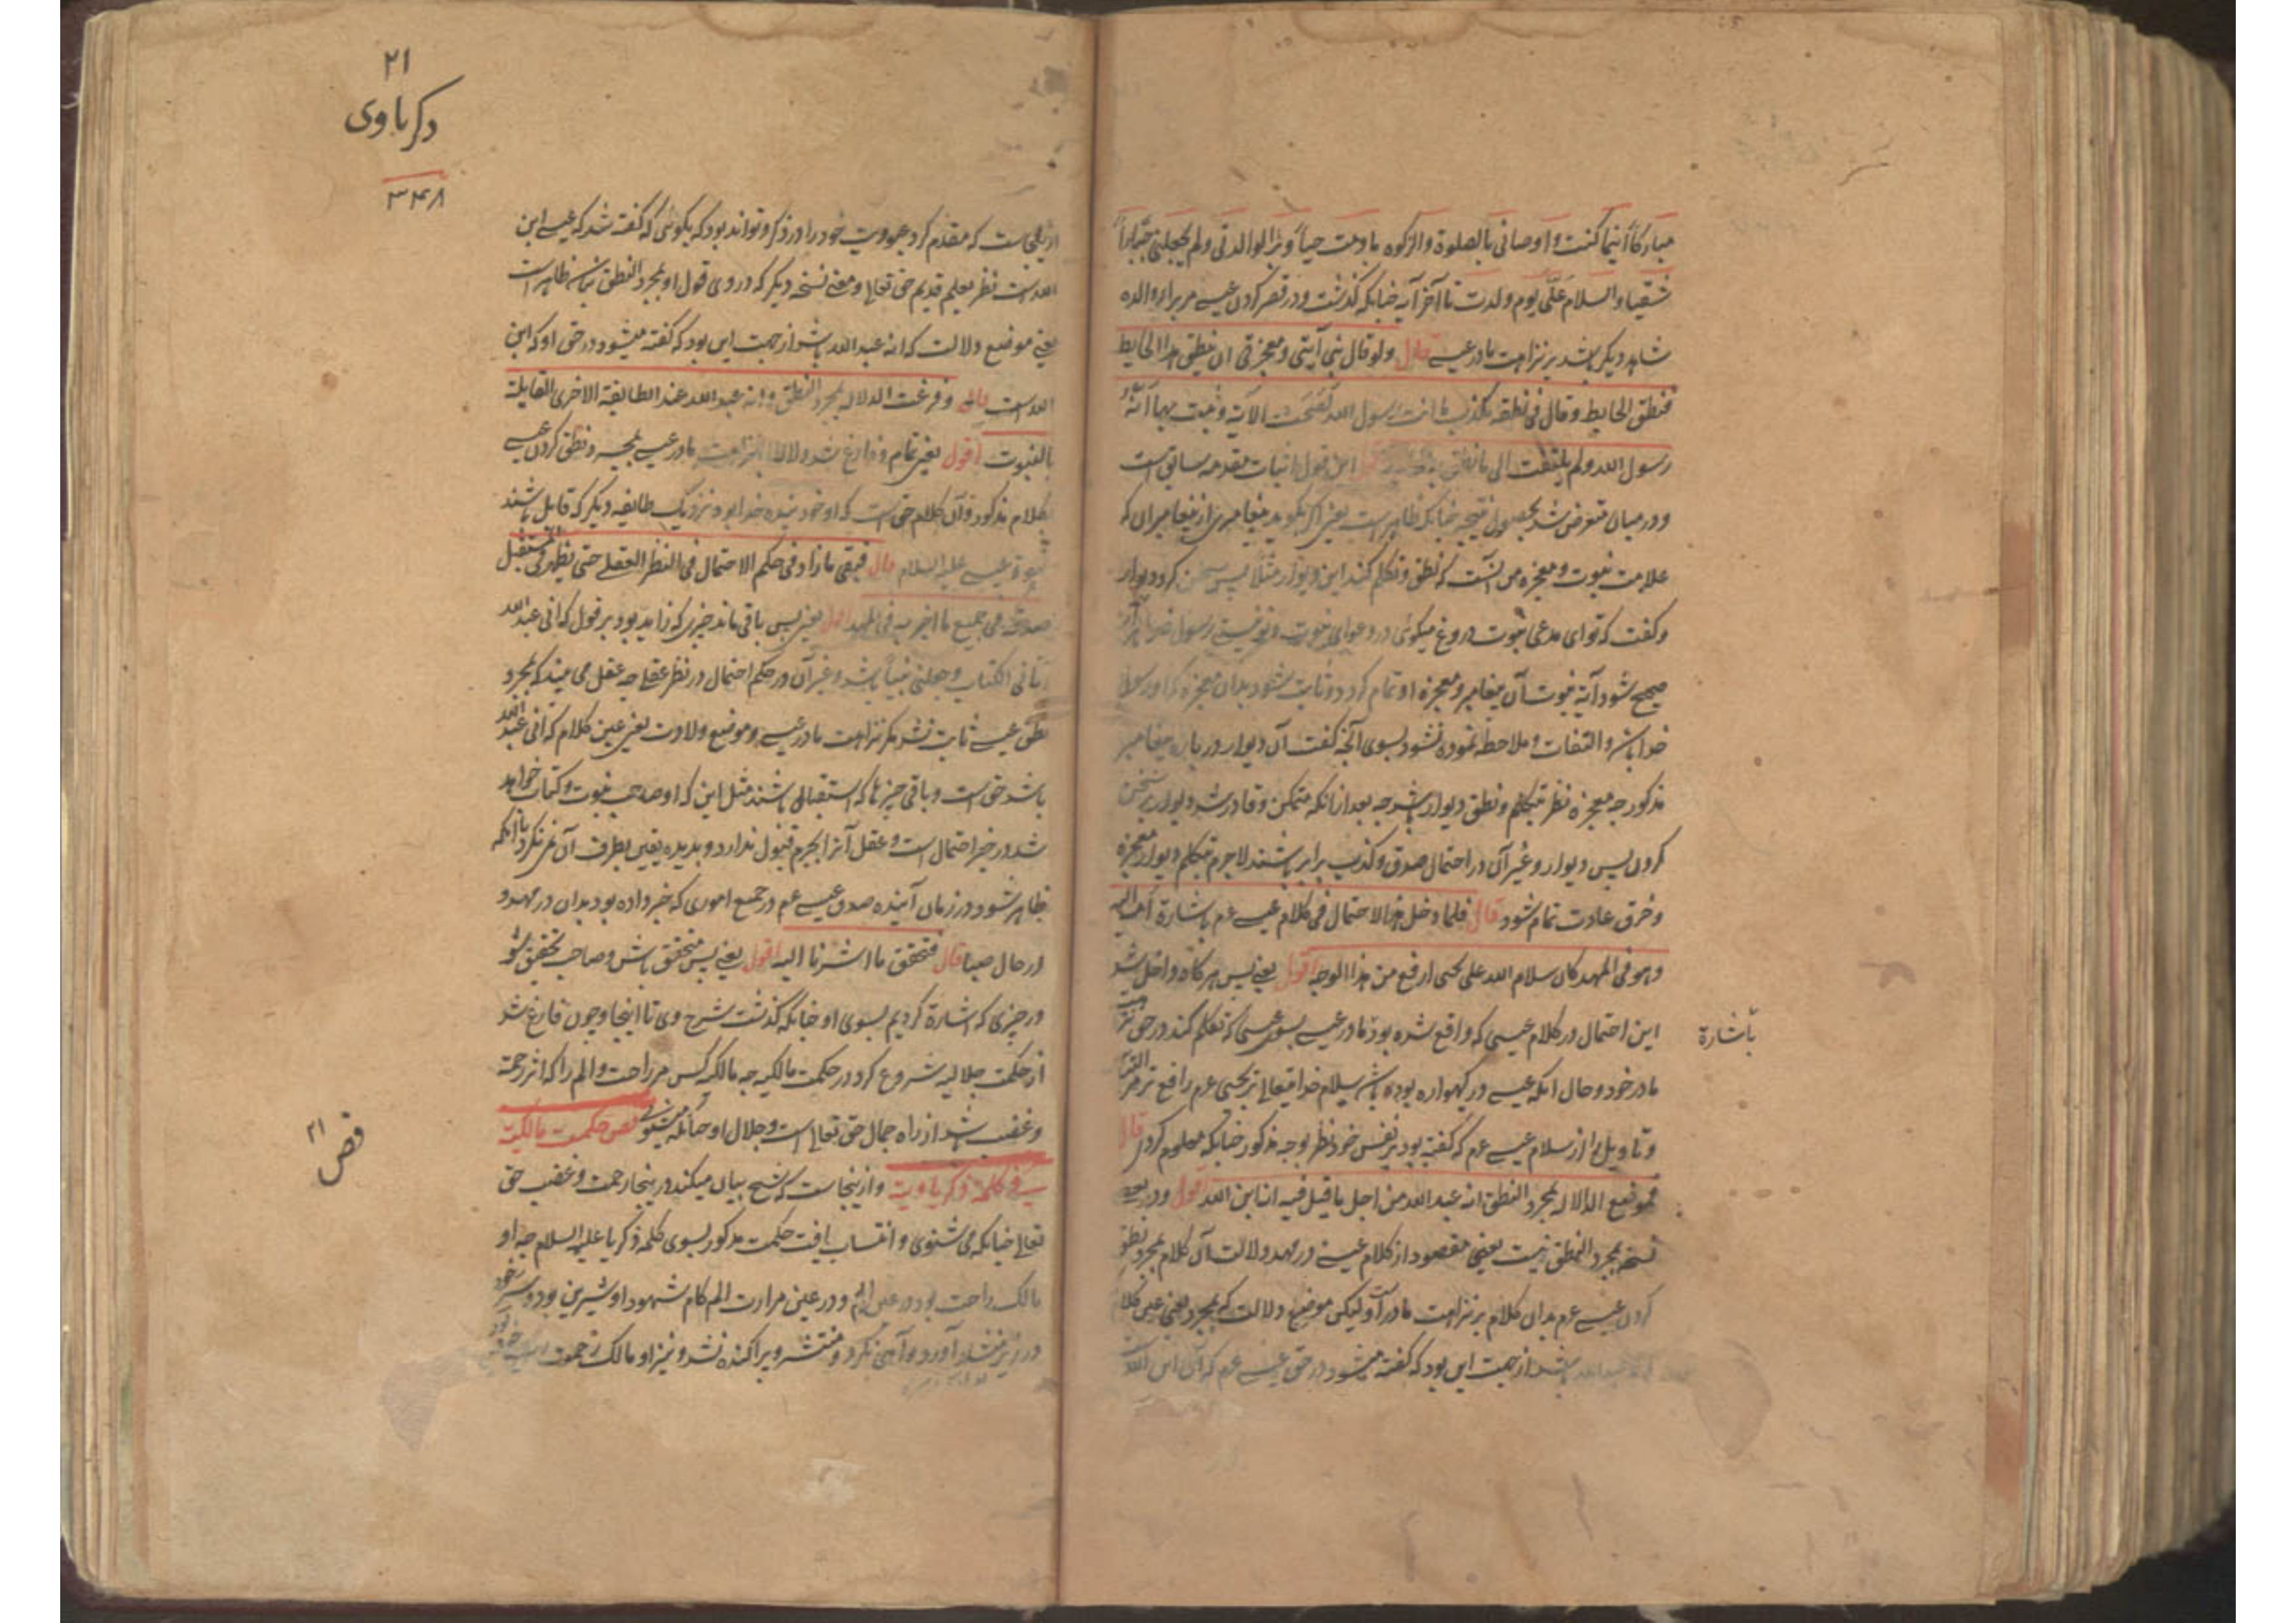 مبارکاً اینما کنت و اوصانی بالصلوة والزکوه مادمت حیاً و براً بوالدتی ولم یجعلنی جباراً
شقیا والسلام علی یوم ولدت تا آخر آیه چنانکه گذشت و در قصر کردن عیسے مر برابر والده
شاهد دیگر باشد بر نزاهت مادر عیسے قال ولو قال نبی آیتی و معجزتی ان ینطق هذا الحایط
فنطق الحایط و قال فی نطقه تکذب ما انت رسول الله لصحت الآیة و ثبت بها انه
رسول الله ولم یلتفت الی ما نطق به الحایط این قول اثبات مقدمه سابق است
و در میان متعرض شد بحصول نتیجه چنانکه ظاهر است یعنی اگر بگوید پیغامبری از پیغامبران که
علامت نبوت و معجزه من آنست که نطق و تکلم کند این دیوار مثلا پس سخن کرد دیوار
و گفت که تو ای مدعی نبوت دروغ میگوئی در دعوای نبوت و تو نیستی رسول خدا
صحیح شود آیة نبوت آن پیغامبر و معجزه او تمام گردد و ثابت شود بدان معجزه که او رسول
خدا باشد و التفات و ملاحظه نموده نشود بسوی آنچه گفت آن دیوار در باره پیغامبر
مذکور چه معجزه نظر بتکلم و نطق دیوار باشد چه بعد از آنکه متمکن و قادر شد دیوار بر سخن
کردن پس دیوار و غیر آن در احتمال صدق و کذب برابر باشند لاجرم بتکلم دیوار معجزه
و خرق عادت تمام شود قال فلما دخل هذا الاحتمال فی کلام عیسے عم باشارة امه الیه
و هو فی المهد کان سلام الله علی یحیی ارفع من هذا الوجه اقول یعنے پس هرگاه داخل شد
این احتمال در کلام عیسی که واقع شده بود مادر عیسے بسوی عیسی که تکلم کند در حق نزاهت
باشارة
مادر خود و حال آنکه عیسے در گهواره بوده باشد سلام خدا تعالے بر یحیی عم رافع تر مر التباس
و تاویل را از سلام عیسے عم که گفته بود بر نفس خود نظر بوجه مذکور چنانکه معلوم کردی قال
فموضع الدلالة بمجرد النطق انه عبد الله من اجل ما قیل فیه انه ابن الله اقول و در بعضے
نسخه بمجرد النطق نیست یعنی مقصود از کلام عیسے در مهد دلالت آن کلام بمجرد نطق
کردن عیسے عم بدان کلام بر نزاهت مادر او لیکن موضع دلالت که بمجرد یعنی عین کلام
انه عبد الله باشد از جهت این بود که گفته میشود در حق عیسے عم که آن ابن الله
۲۱
ذکریاوی
۳۴۸
ازینجاست که مقدم کرد عبودیت خود را در ذکر و تواند بود که بگوئی که گفته شد که عیسے ابن
الله است نظر بعلم قدیم حق تعالے و معنے نسخه دیگر که در وی قول او بمجرد النطق نباشد ظاهر است
یعنے موضع دلالت که انه عبد الله باشد از جهت این بود که گفته میشود در حق او که ابن
الله است قال و فرغت الدلالة بمجرد النطق و انه عبد الله عند الطایفة الاخری القایلة
بالنبوت اقول یعنی تمام و فارغ شد دلالة بنزاهت مادر عیسے بمجرد نطق کردن عیسے
بکلام مذکور و آن کلام حق است که او خود بنده خدا بود نزدیک طایفه دیگر که قابل باشند
نبوة عیسے علیه السلام قال فبقی ما زاد فی حکم الاحتمال فی النظر العقلے حتی یظهر فی المستقبل
صدقه فی جمیع ما اخبر به فی المهد اقول یعنی پس باقی ماند چیزی که زاید بود بر قول که انی عبد الله
آتانی الکتاب و جعلنی نبیاً باشد و غیر آن در حکم احتمال در نظر عقلے چه عقل می بیند که بمجرد
نطق عیسے ثابت نشد مگر نزاهت مادر عیسے و موضع ولادت یعنی عین کلام که انی عبد الله
باشد حق است و باقی چیزها که استقبالی باشند مثل این که او صاحب نبوت و کتاب خواهد
شد در خبر احتمال است و عقل آنرا بجزم قبول ندارد و بدیده یقین بطرف آن نمی نگرد تا آنکه
ظاهر شود در زمان آینده صدق عیسے عم در جمیع اموری که خبر داده بود بدان در مهد و
در حال صبا قال فتحقق ما اشرنا الیه اقول یعنے پس متحقق باش و صاحب تحقیق شو
در چیزی که اشارة کردیم بسوی او چنانکه گذشت شرح وی تا اینجا و چون فارغ شد
از حکمت جلالیه شروع کرد در حکمت مالکیه چه مالکیه کس مر راحت و الم را که اثر رحمة
و غضب باشد از راه جمال حق تعالے است و جلال او چنانکه میشنوی فص حکمت مالکیة
فص ۲۱
فی کلمة ذکریاویة و ازینجاست که شیخ بیان میکند درینجا رحمت و غضب حق
تعالے چنانکه می شنوی و انتساب یافت حکمت مذکور بسوی کلمه ذکریا علیه السلام چه او
مالک راحت بود در عین الم و در عین مرارت الم کام شهود او شیرین بود و سر خود
در زیر منشار آورد و آهی نکرد و منتشر و پراکنده نشد و نیز او مالک رحموت